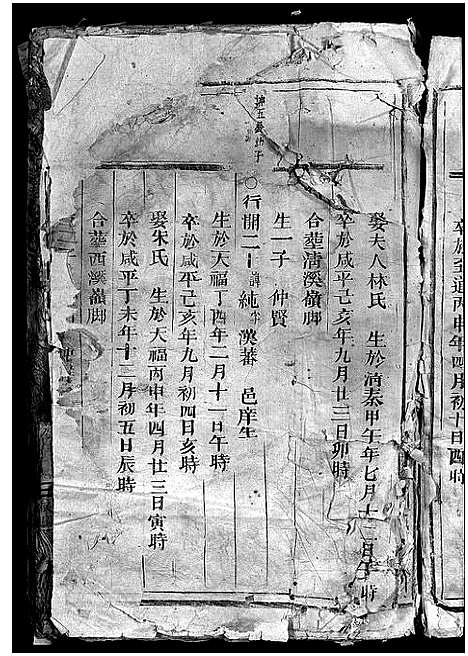 卒於至道丙申年四月初十日酉時
娶夫人林氏　生於清泰甲午年七月十二日午時
卒於咸平己亥年九月廿二日卯時
合葬清溪嶺脚
生一子　仲賢
○行開二十　諱純　字漢蕃　邑庠生
生於天福丁酉年二月十一日午時
卒於咸平己亥年九月初四日亥時
娶朱氏　生於天福丙申年四月廿三日寅時
卒於咸平丁未年十二月初五日辰時
合葬西溪嶺脚